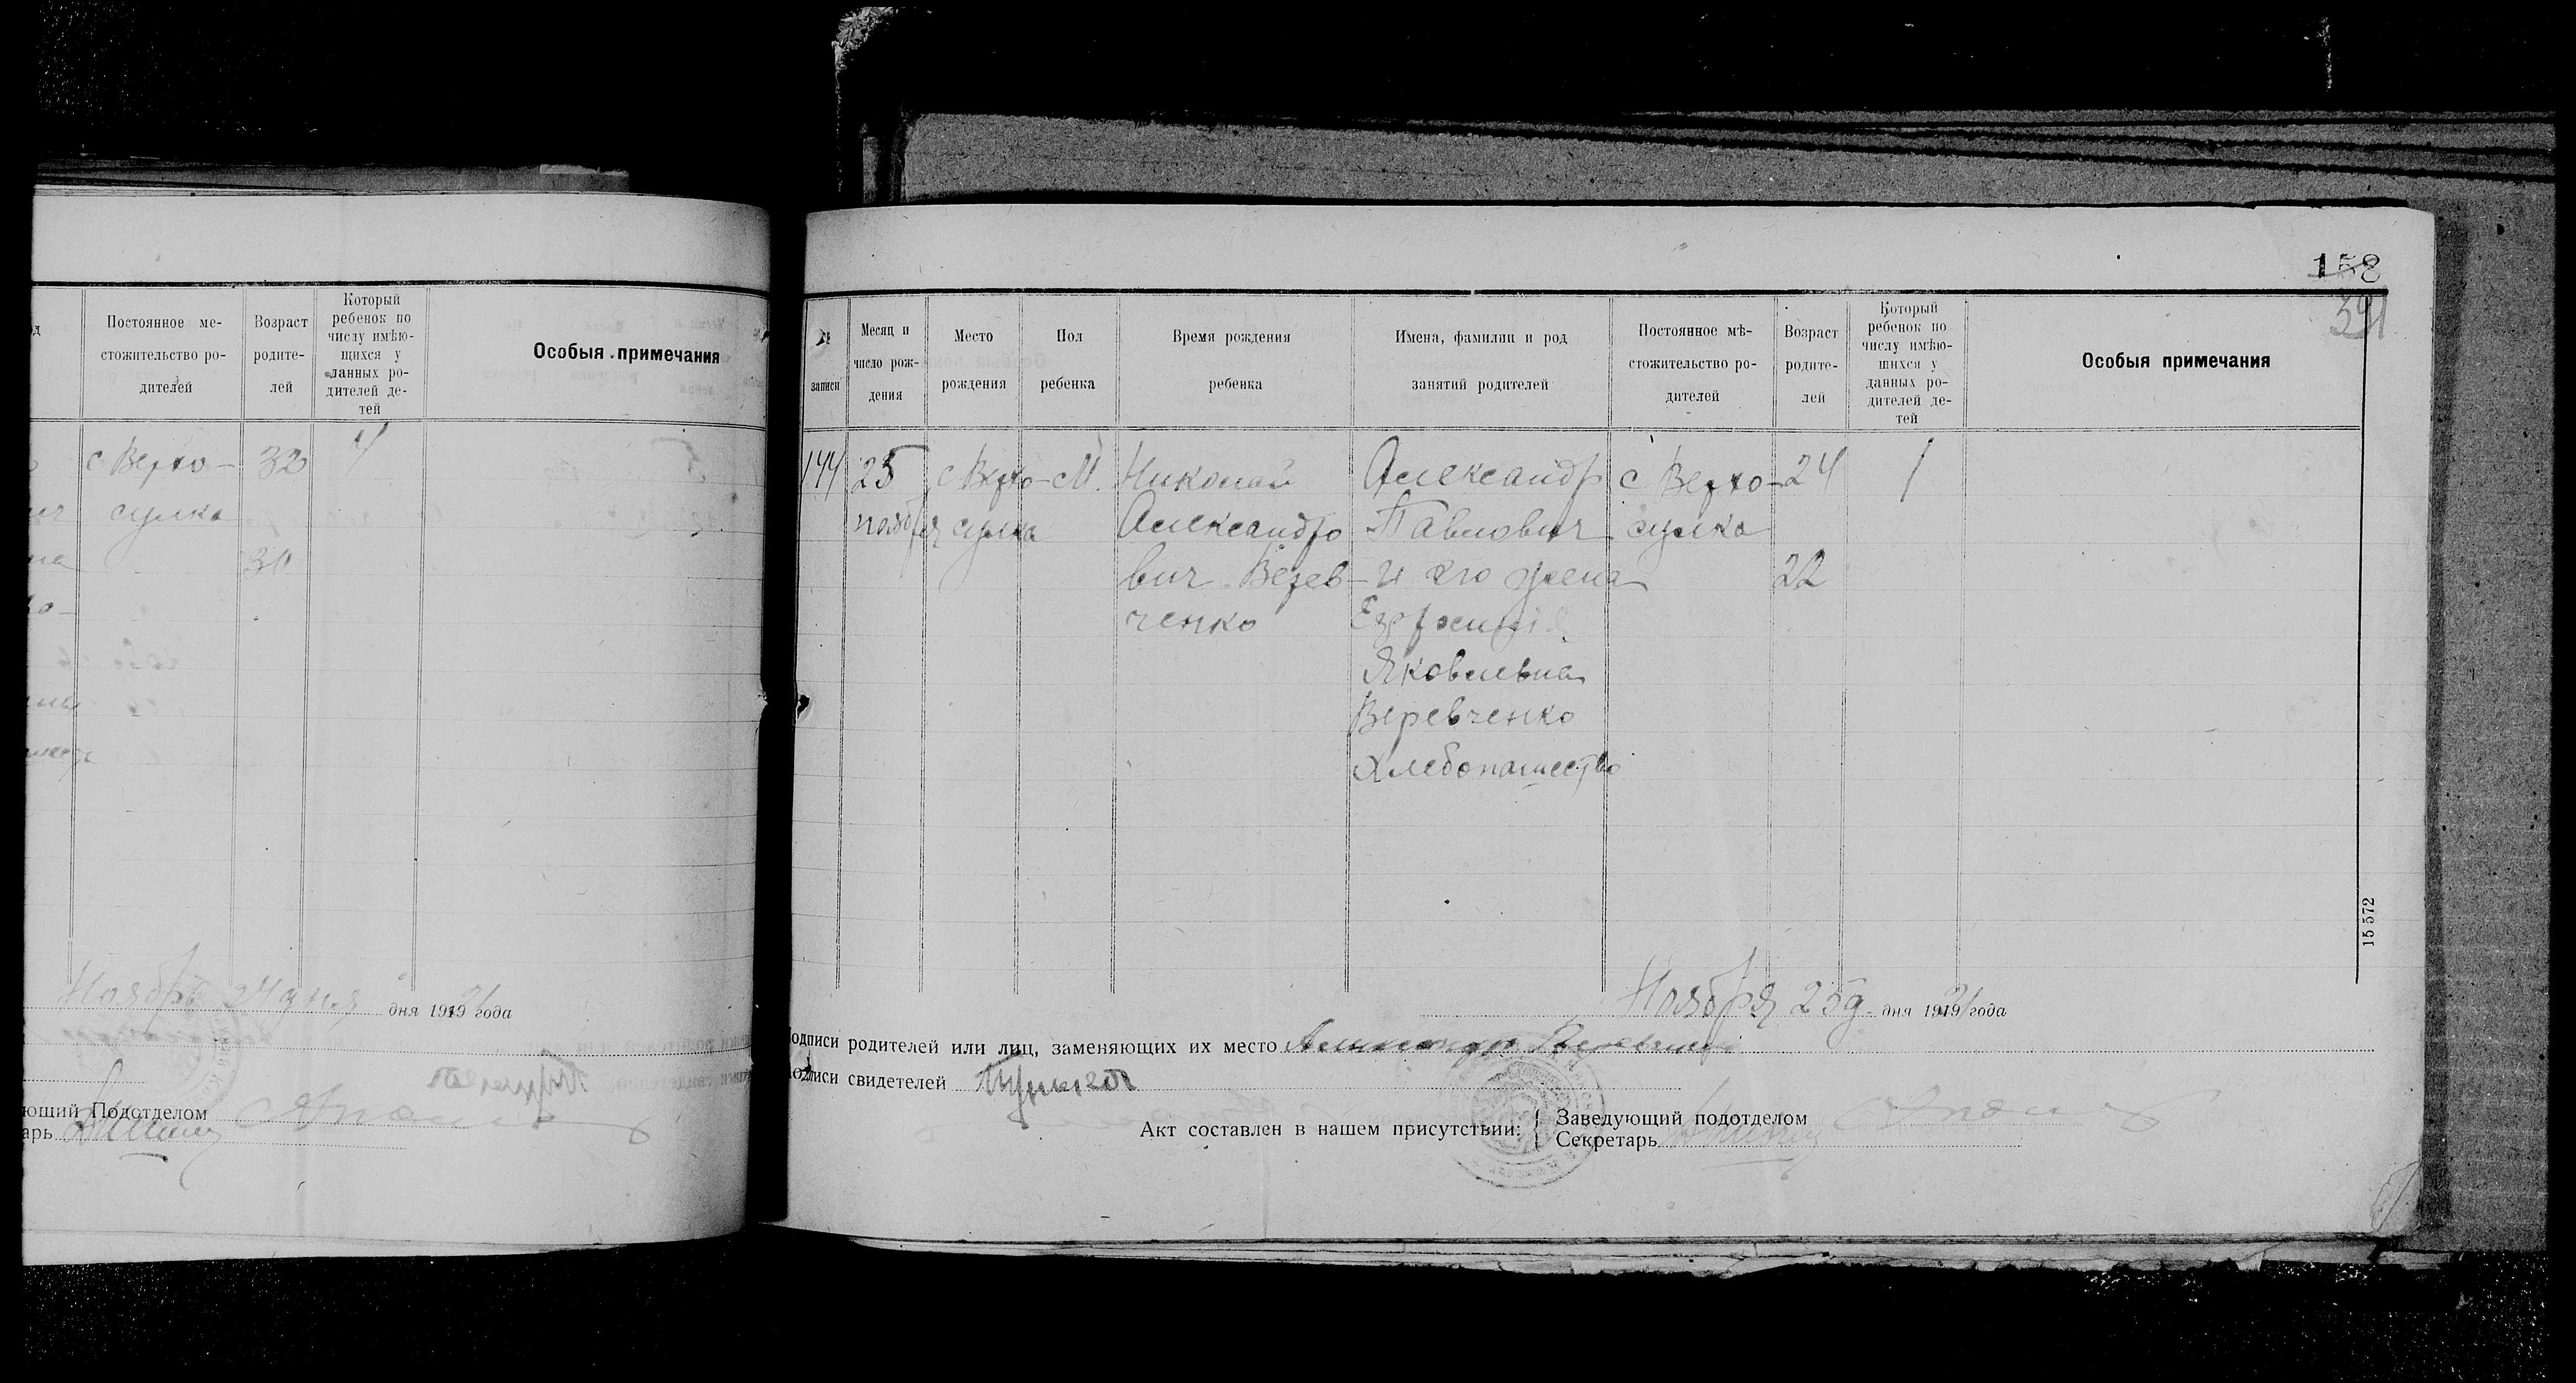 Постоянное ме-
стожительство ро-
дителей
Возраст
родите-
лей
Который
ребенок по
числу имѣю-
щихся у
данных ро-
дителей де-
тей
Особыя примечания
с Верхо-
сулка
32
30
4
Ноября 24 дня дня 1919 года
ющий Подотделом
арь
158
391
№
записи
Месяц и
число рож-
дения
Место
рождения
Пол
ребенка
Время рождения
ребенка
Имена, фамилии и род
занятий родителей
Постоянное мѣ-
стожительство ро-
дителей
Возраст
родите-
лей
Который
ребенок по
числу имѣю-
щихся у
данных ро-
дителей де-
тей
Особыя примечания
144
25
ноября
с Верхо-
сулка
М.
Николай
Александро
вич Верев-
ченко
Александр
Павлович
и его жена
Яковлевна
Веревченко
Хлебопашество
с Верхо-
сулка
24
22
1
15572
Ноября 25 д. дня 1919 года
Подписи родителей или лиц, заменяющих их место Александр Веревченко
Подписи свидетелей
Акт составлен в нашем присутствии:
Заведующий подотделом
Секретарь